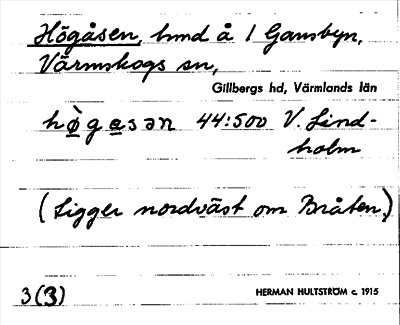 Högåsen, hmd å 1 Gansbyn,
Värmskogs sn,
Gillbergs hd, Värmlands län
hø̀gasən 44:500 V. Lind-
holm
(Ligger nordväst om Bråten.)
3(3)
HERMAN HULTSTRÖM c. 1915